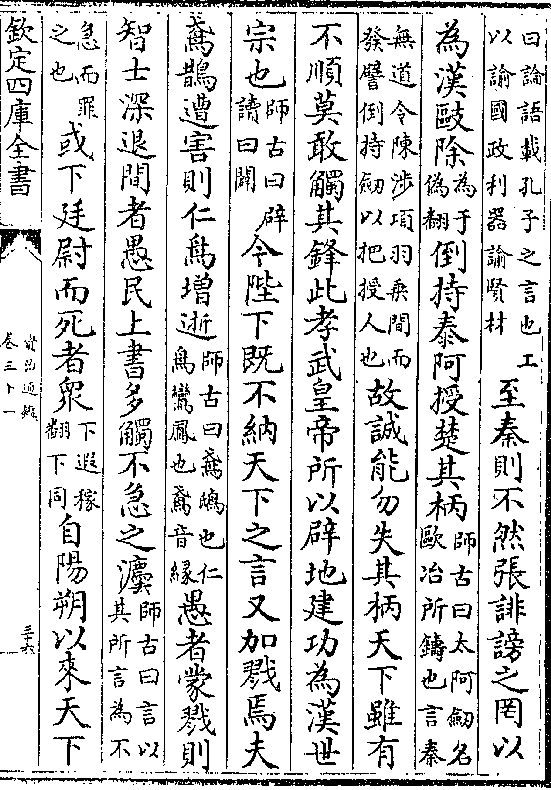 曰論語載孔子之言也工
以諭國政利器諭賢材
至秦則不然張誹謗之罔以
為漢敺除
為于
偽翻
倒持泰阿授楚其柄
師古曰太阿劔名
歐冶所鑄也言秦
無道令陳涉項羽乗間而
發譬倒持劔以把授人也
故誠能勿失其柄天下雖有
不順莫敢觸其鋒此孝武皇帝所以辟地建功為漢世
宗也
師古曰辟
讀曰闢
今陛下既不納天下之言又加戮焉夫
鳶鵲遭害則仁鳥增逝
師古曰鳶鴟也仁
鳥鸞鳳也鳶音縁
愚者蒙戮則
智士深退間者愚民上書多觸不急之灋
師古曰言以
其所言為不
急而罪
之也
或下廷尉而死者衆
下遐稼
翻下同
自陽朔以來天下
欽定四庫全書
資治通鑑
卷三十一
三十六